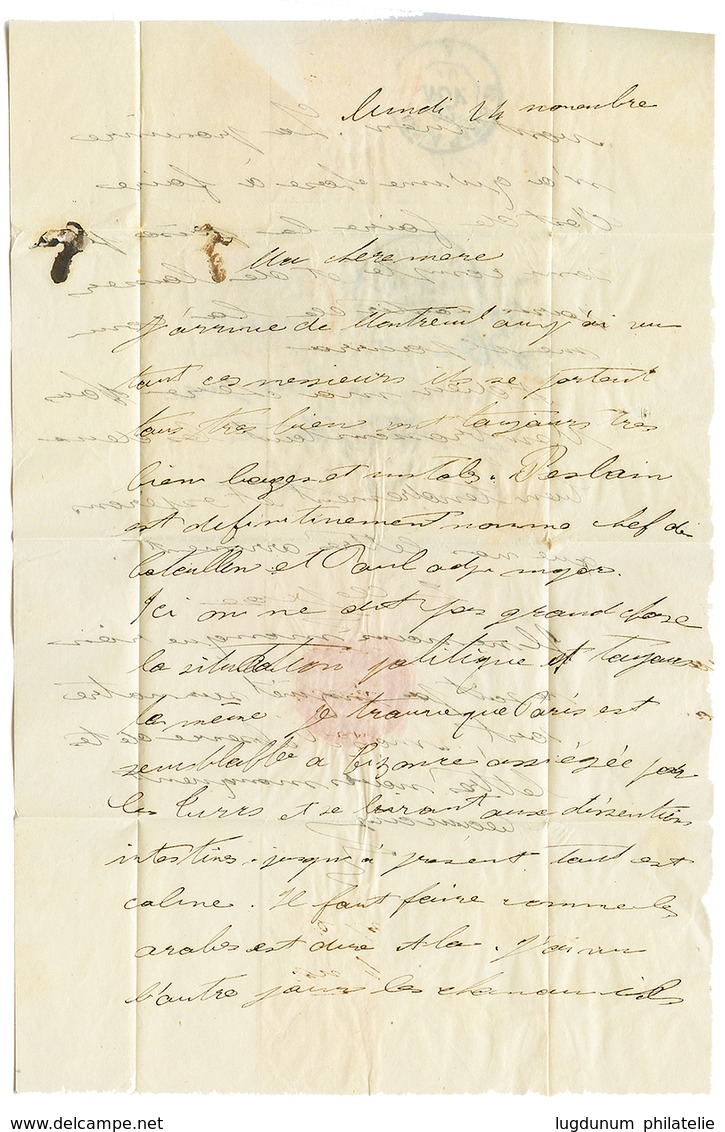 lundi 14 novembre
Ma chere mere
J'arrive de Montreuil ou j'ai vu
tout ces messieurs ils se portent
tous tres bien sont toujours tres
bien logés et
est definitivement nommé chef de
bataillon et Paul adju major.
Ici on ne dit pas grand chose
la situation politique est toujours
la même. Je trouve que Paris est
semblable a Bizance assiégée par
les turcs et se livrant aux dissentions
intestines. jusqu'à présent tout est
calme. Il faut faire comme les
arabes est dire Ala. J'ai vu
l'autre jours les
lugdunum philatelie